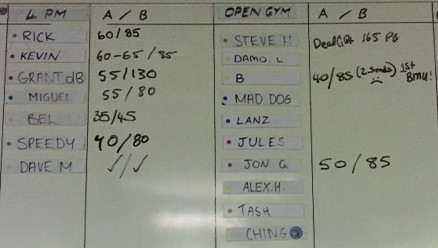 4 PM A / B
RICK 60/85
KEVIN 60-65/85
GRANT dB 55/130
MIGUEL 55/80
BEL 35/45
SPEEDY 40/80
DAVE M ✓/✓
OPEN GYM A / B
STEVE H Deadlift 165 PB
DAMO L
B 40/85 1st
MAD DOG
LANZ
JULES
JON G 50/85
ALEX.H
TASH
CHING